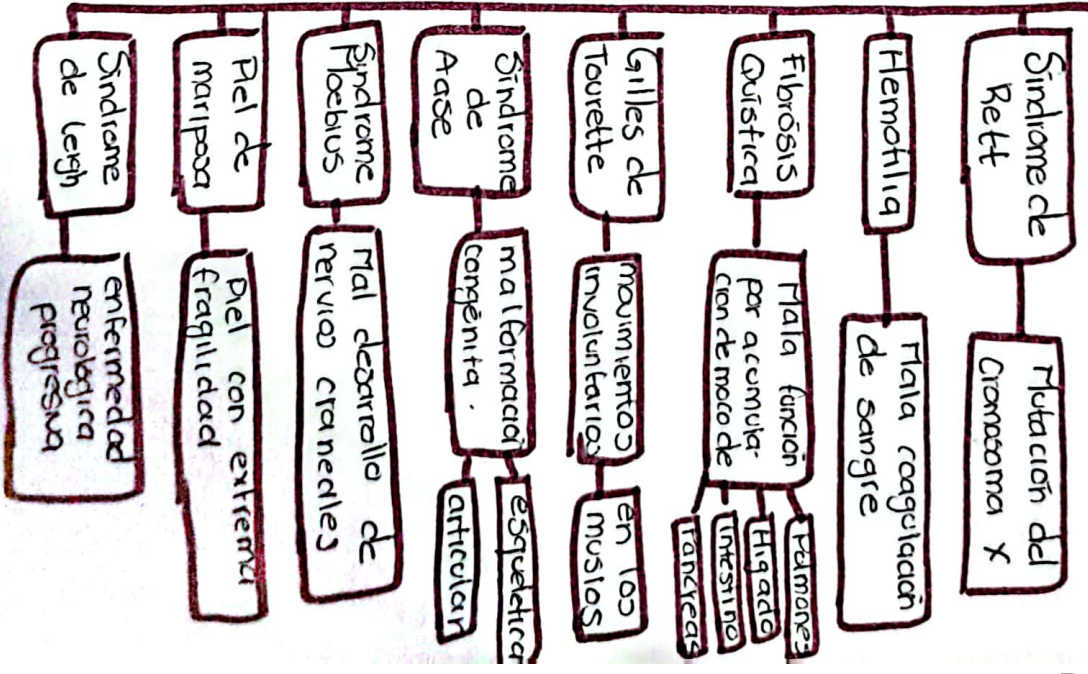 Sindrome de
Rett
Mutación del
Cromosoma X
Hemofilia
Mala coagulación
de sangre
Fibrósis
Quística
Mala función
por acumula-
cion de moco de
Pulmones
Higado
intestino
Pancreas
Gilles de
Tourette
movimientos
involuntarios
en los
muslos
Sindrome
de
Aase
malformación
congénita.
esqueletica
articular
Sindrome
Moebius
Mal desarrollo de
nervios craneales
Piel de
mariposa
Piel con extrema
fragilidad
Sindrome
de leigh
enfermedad
neurologica
progresiva